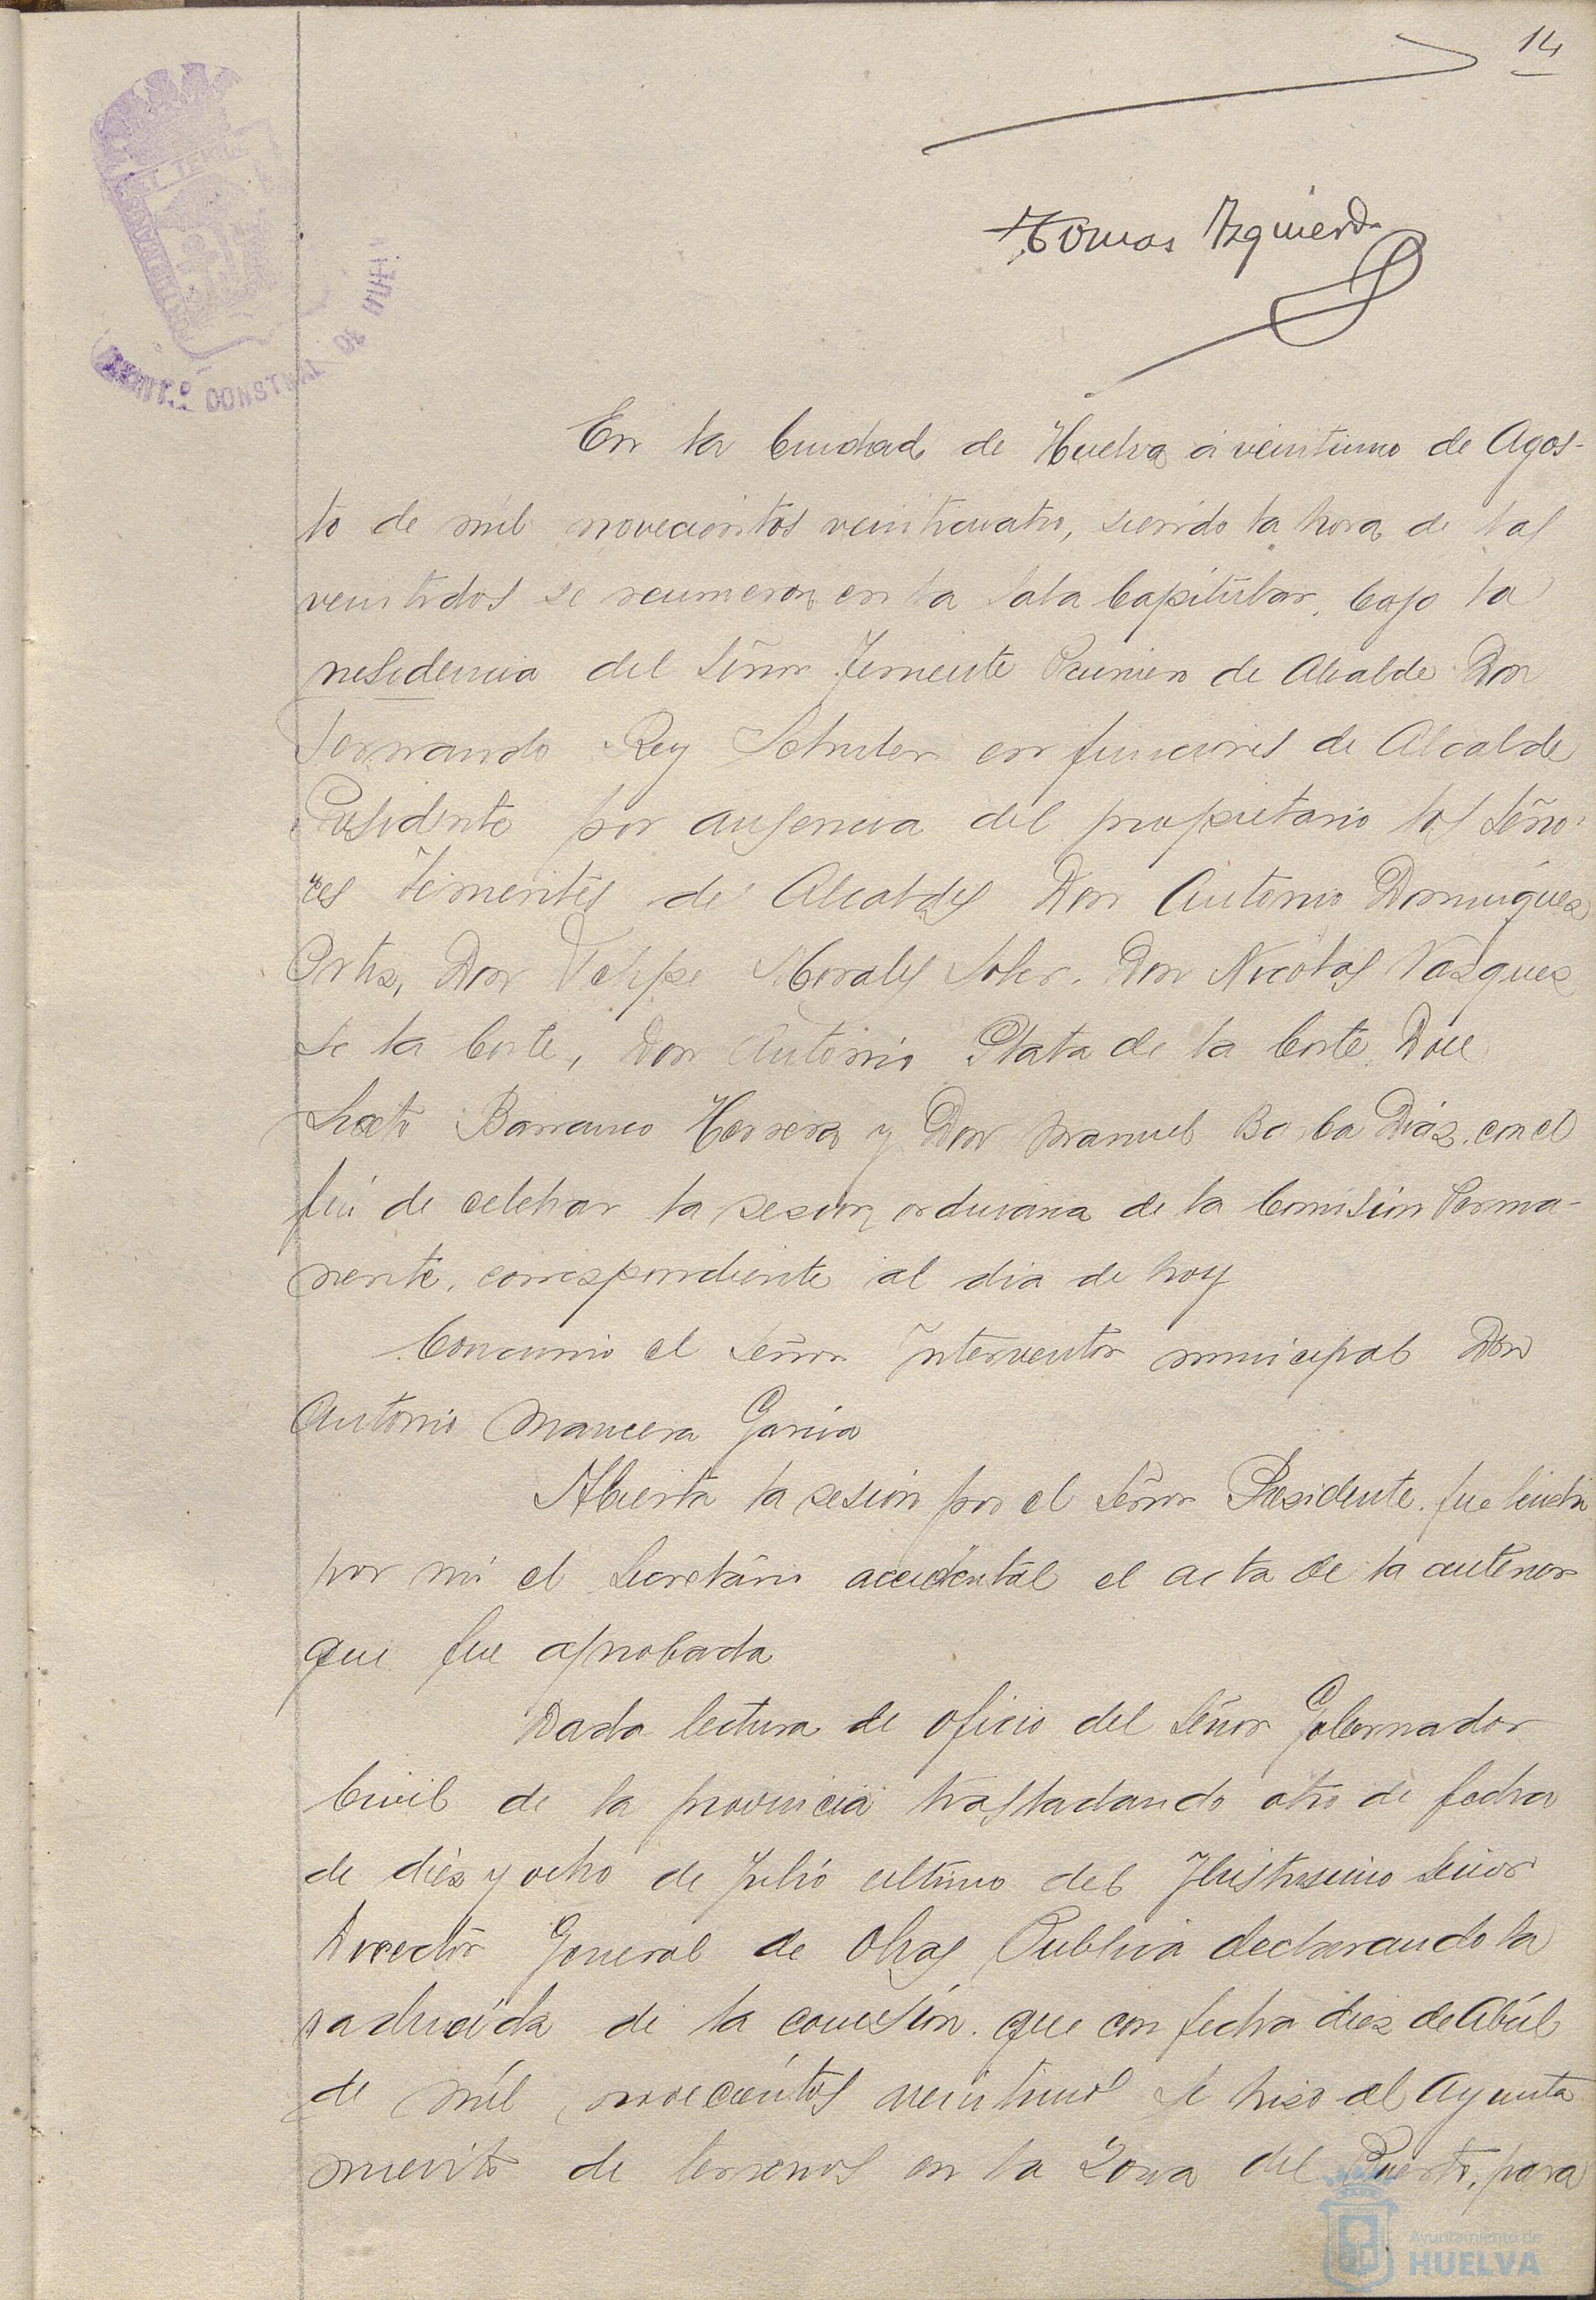 14
Tomas Izquierdo
AYUNT.º CONSTNAL DE HUEL
En la Ciudad de Huelva á veintiuno de Agos-
to de mil novecientos veinticuatro, siendo la hora de las
veintidos se reunieron en la Sala Capitular, bajo la
presidencia del Señor Teniente Primero de Alcalde Don
Fernando Rey Schuler en funciones de Alcalde
Presidente por ausencia del propietario los Seño-
res Tenientes de Alcaldes Don Antonio Dominguez
Ortiz, Don Felipe Morales Soler, Don Nicolas Vazquez
de la Corte, Don Antonio Plata de la Corte, Don
Sixto Barranco Herrera y Don Manuel Barba Diaz, con el
fin de celebrar la sesion ordinaria de la Comisión Perma-
nente, correspondiente al dia de hoy
Concurrio el Señor Interventor municipal Don
Antonio Mancera Garcia
Abierta la sesión por el Señor Presidente, fue leida
por mi el Secretario accidental el acta de la anterior
que fue aprobada
Dada lectura de oficio del Señor Gobernador
Civil de la provincia trasladando otro de fecha
de diez y ocho de Julio ultimo del Ilustrisimo Señor
Director General de Obras Publica declarando la
caducidad de la concesión que con fecha diez de Abril
de mil novecientos veintiuno se hizo al Ayunta
miento de terrenos en la Zona del Puerto, para
Ayuntamiento de
HUELVA